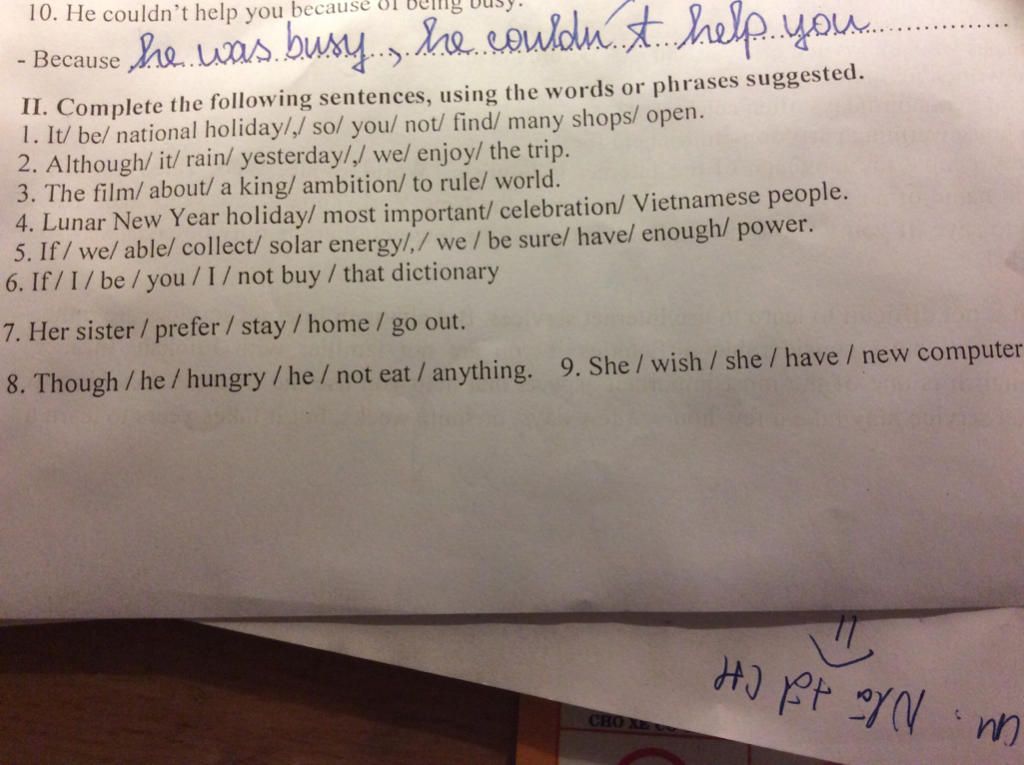 10. He couldn't help you because of being busy.
- Because he was busy, he couldn't help you
II. Complete the following sentences, using the words or phrases suggested.
1. It/ be/ national holiday/,/ so/ you/ not/ find/ many shops/ open.
2. Although/ it/ rain/ yesterday/,/ we/ enjoy/ the trip.
3. The film/ about/ a king/ ambition/ to rule/ world.
4. Lunar New Year holiday/ most important/ celebration/ Vietnamese people.
5. If / we/ able/ collect/ solar energy/,/ we / be sure/ have/ enough/ power.
6. If / I / be / you / I / not buy / that dictionary
7. Her sister / prefer / stay / home / go out.
8. Though / he / hungry / he / not eat / anything. 9. She / wish / she / have / new computer
CHO XE